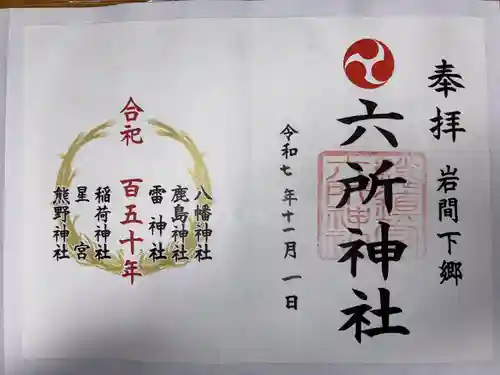 奉拝
岩間下郷
六所神社
令和七年十一月一日
八幡神社
鹿島神社
雷神社
合祀 百五十年
稲荷神社
星宮
熊野神社